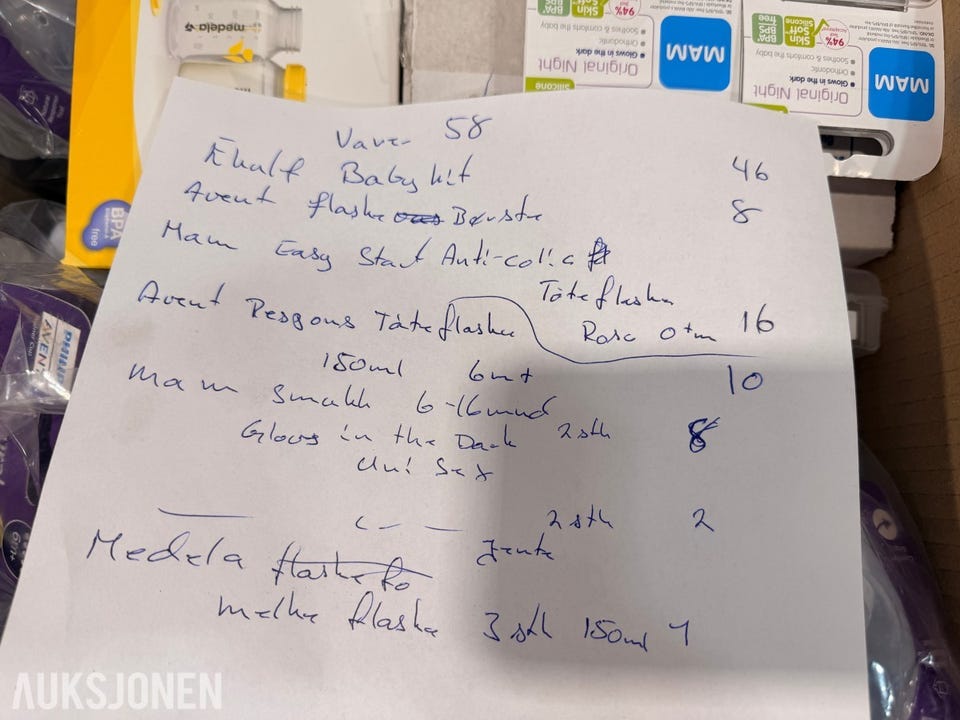 medela
MAM
Original Night
Glows in the dark
Orthodontic
Soothes & comforts the baby
Skin Soft Silicone
94%
BPA BPS free
MAM
Original Night
Glows in the dark
Orthodontic
Soothes & comforts the baby
Skin Soft Silicone
94%
BPA BPS free
BPA free
PHILIPS AVENT
Varer 58
Baby kit 46
Avent flaske Børste 8
Mam Easy Start Anti-colic
Tåteflaske
Avent Tåteflaske Rosa 0+m 16
150ml 6m+ 10
Mam Smukk 6-16mnd
Glows in the Dark 2stk 8
Uni Sex
2stk 2
Jente
Medela flaske
melke flaske 3 stk 150ml
AUKSJONEN